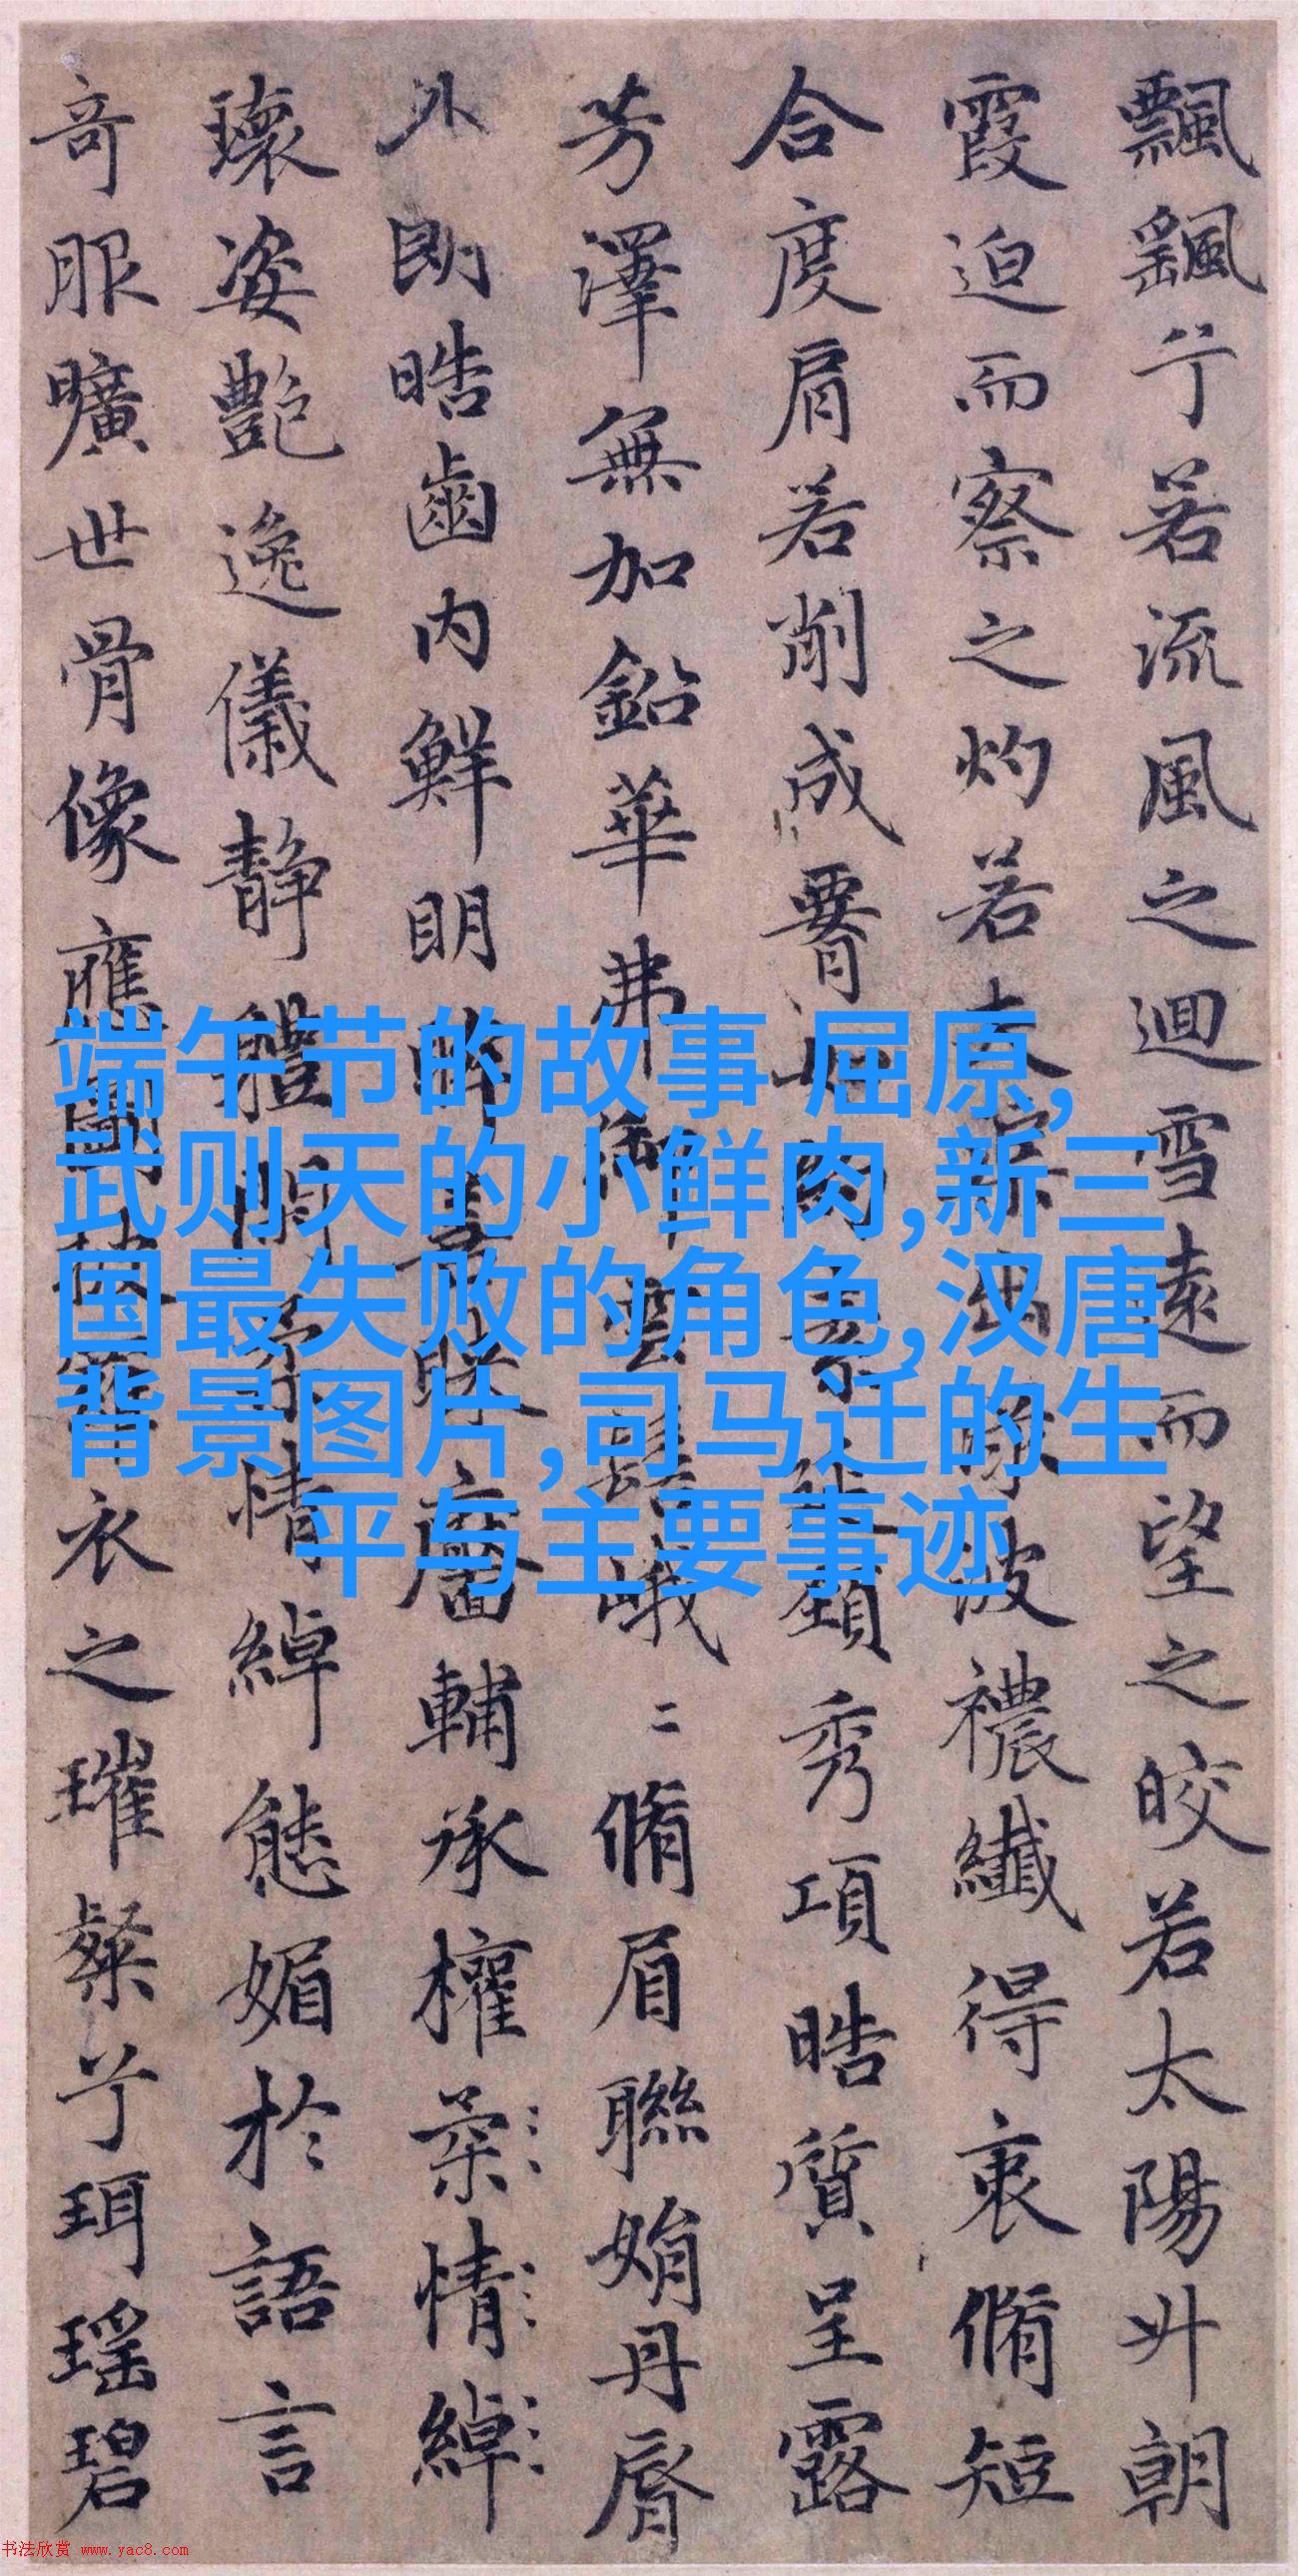 飄飖兮若流風之迴雪遠而望之皎若太陽升朝
霞迫而察之灼若夫蕖出淥波襛纖得衷脩短
合度肩若削成腰如約素延頸秀項皓質呈露
芳澤無加鉛華弗御雲髻峨二脩眉聯娟丹脣
外朗皓齒内鮮明眸善睞靨輔承權柔情綽
瓌姿艷逸儀靜體閑柔情綽態媚於語言
奇服曠世骨像應圖披羅衣之璀粲兮珥瑶碧
端午节的故事 屈原,
武则天的小鲜肉,新三
国最失败的角色,汉唐
背景图片,司马迁的生
平与主要事迹
书法欣赏 www.yac8.com